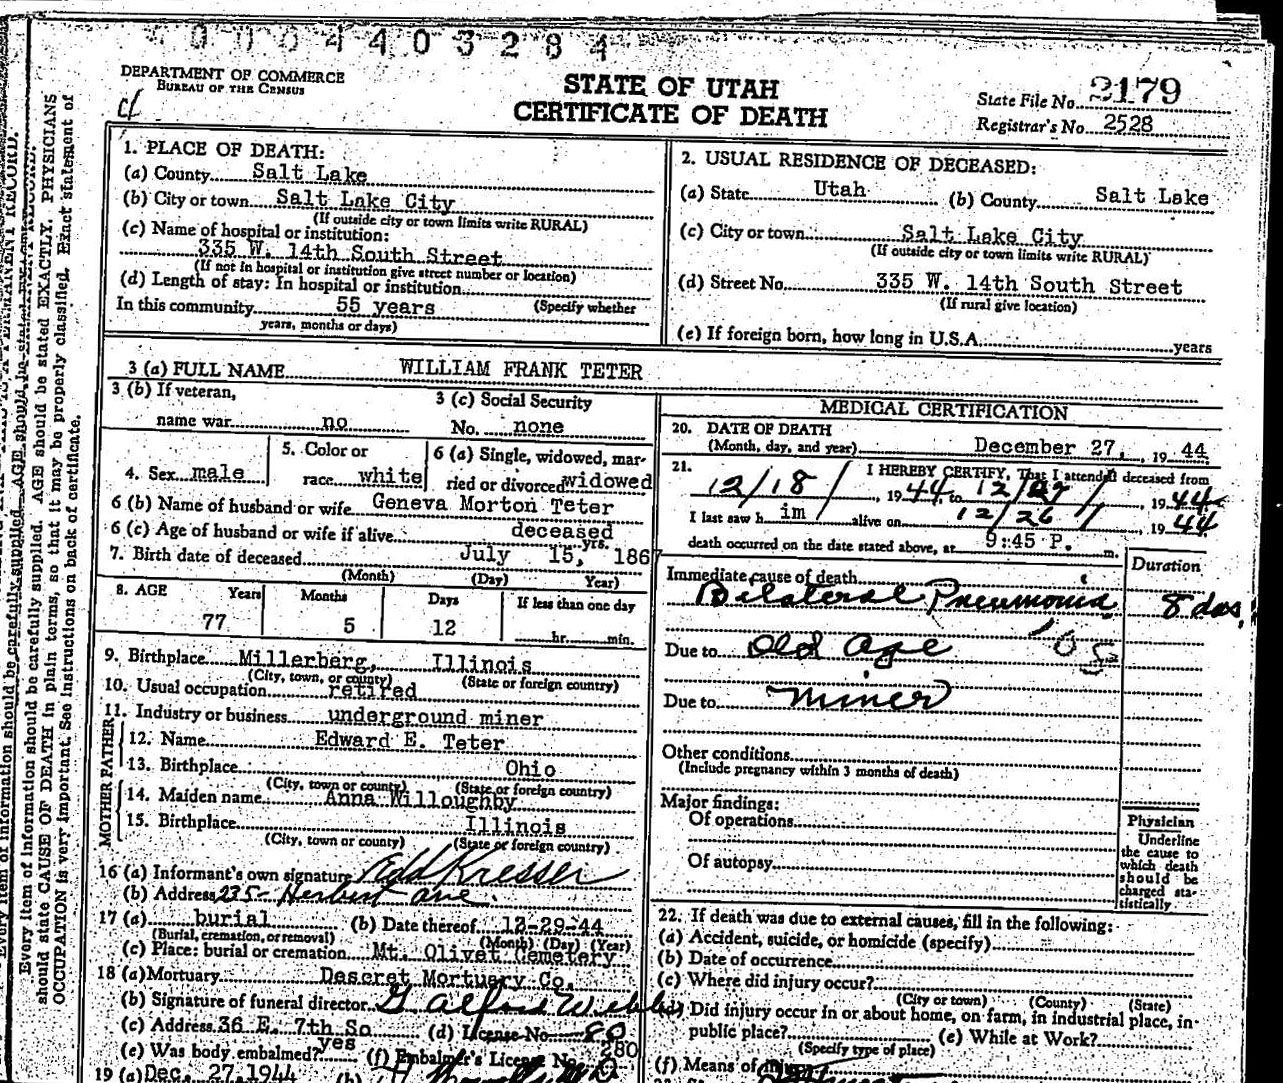 0004403284
DEPARTMENT OF COMMERCE
BUREAU OF THE CENSUS
STATE OF UTAH
CERTIFICATE OF DEATH
State File No. 2179
Registrar's No. 2528
Every item of information should be carefully supplied. AGE should be stated EXACTLY. PHYSICIANS
should state CAUSE OF DEATH in plain terms, so that it may be properly classified. Exact statement of
OCCUPATION is very important. See instructions on back of certificate.
1. PLACE OF DEATH:
(a) County Salt Lake
(b) City or town Salt Lake City
(If outside city or town limits write RURAL)
(c) Name of hospital or institution:
335 W. 14th South Street
(If not in hospital or institution give street number or location)
(d) Length of stay: In hospital or institution
In this community 55 years (Specify whether
years, months or days)
2. USUAL RESIDENCE OF DECEASED:
(a) State Utah (b) County Salt Lake
(c) City or town Salt Lake City
(If outside city or town limits write RURAL)
(d) Street No. 335 W. 14th South Street
(If rural give location)
(e) If foreign born, how long in U.S.A. years
3 (a) FULL NAME WILLIAM FRANK TETER
3 (b) If veteran,
name war no
3 (c) Social Security
No. none
4. Sex male
5. Color or
race white
6 (a) Single, widowed, mar-
ried or divorced widowed
6 (b) Name of husband or wife Geneva Morton Teter
6 (c) Age of husband or wife if alive deceased yrs.
7. Birth date of deceased July 15, 1867
(Month) (Day) Year)
8. AGE Years Months Days If less than one day
77 5 12 hr. min.
9. Birthplace Millerberg, Illinois
(City, town, or county) (State or foreign country)
10. Usual occupation retired
11. Industry or business underground miner
FATHER
12. Name Edward E. Teter
13. Birthplace Ohio
(City, town or county) (State or foreign country)
MOTHER
14. Maiden name Anna Willoughby
15. Birthplace Illinois
(City, town or county) (State or foreign country)
16 (a) Informant's own signature Edd Kresser
(b) Address 235 Herbert Ave.
17 (a) burial (b) Date thereof 12-29-44
(Burial, cremation, or removal) (Month) (Day) (Year)
(c) Place: burial or cremation Mt. Olivet Cemetery
18 (a) Mortuary Deseret Mortuary Co.
(b) Signature of funeral director
(c) Address 36 E. 7th So (d) License No. 80
(e) Was body embalmed? yes (f) Embalmer's License No. 280
19 (a) Dec. 27, 1944 (b)
MEDICAL CERTIFICATION
20. DATE OF DEATH
(Month, day, and year) December 27, 1944
21. I HEREBY CERTIFY, That I attended deceased from
12/18, 1944 to 12/27, 1944
I last saw him alive on 12/26, 1944
death occurred on the date stated above, at 9:45 P. m.
Duration
Immediate cause of death
Bilateral Pneumonia 8 das.
Due to Old Age
Due to Miner
Other conditions
(Include pregnancy within 3 months of death)
Major findings:
Of operations
Of autopsy
Physician
Underline
the cause to
which death
should be
charged sta-
tistically
22. If death was due to external causes, fill in the following:
(a) Accident, suicide, or homicide (specify)
(b) Date of occurrence
(c) Where did injury occur?
(City or town) (County) (State)
Did injury occur in or about home, on farm, in industrial place, in
public place? (e) While at Work?
(Specify type of place)
(f) Means of injury